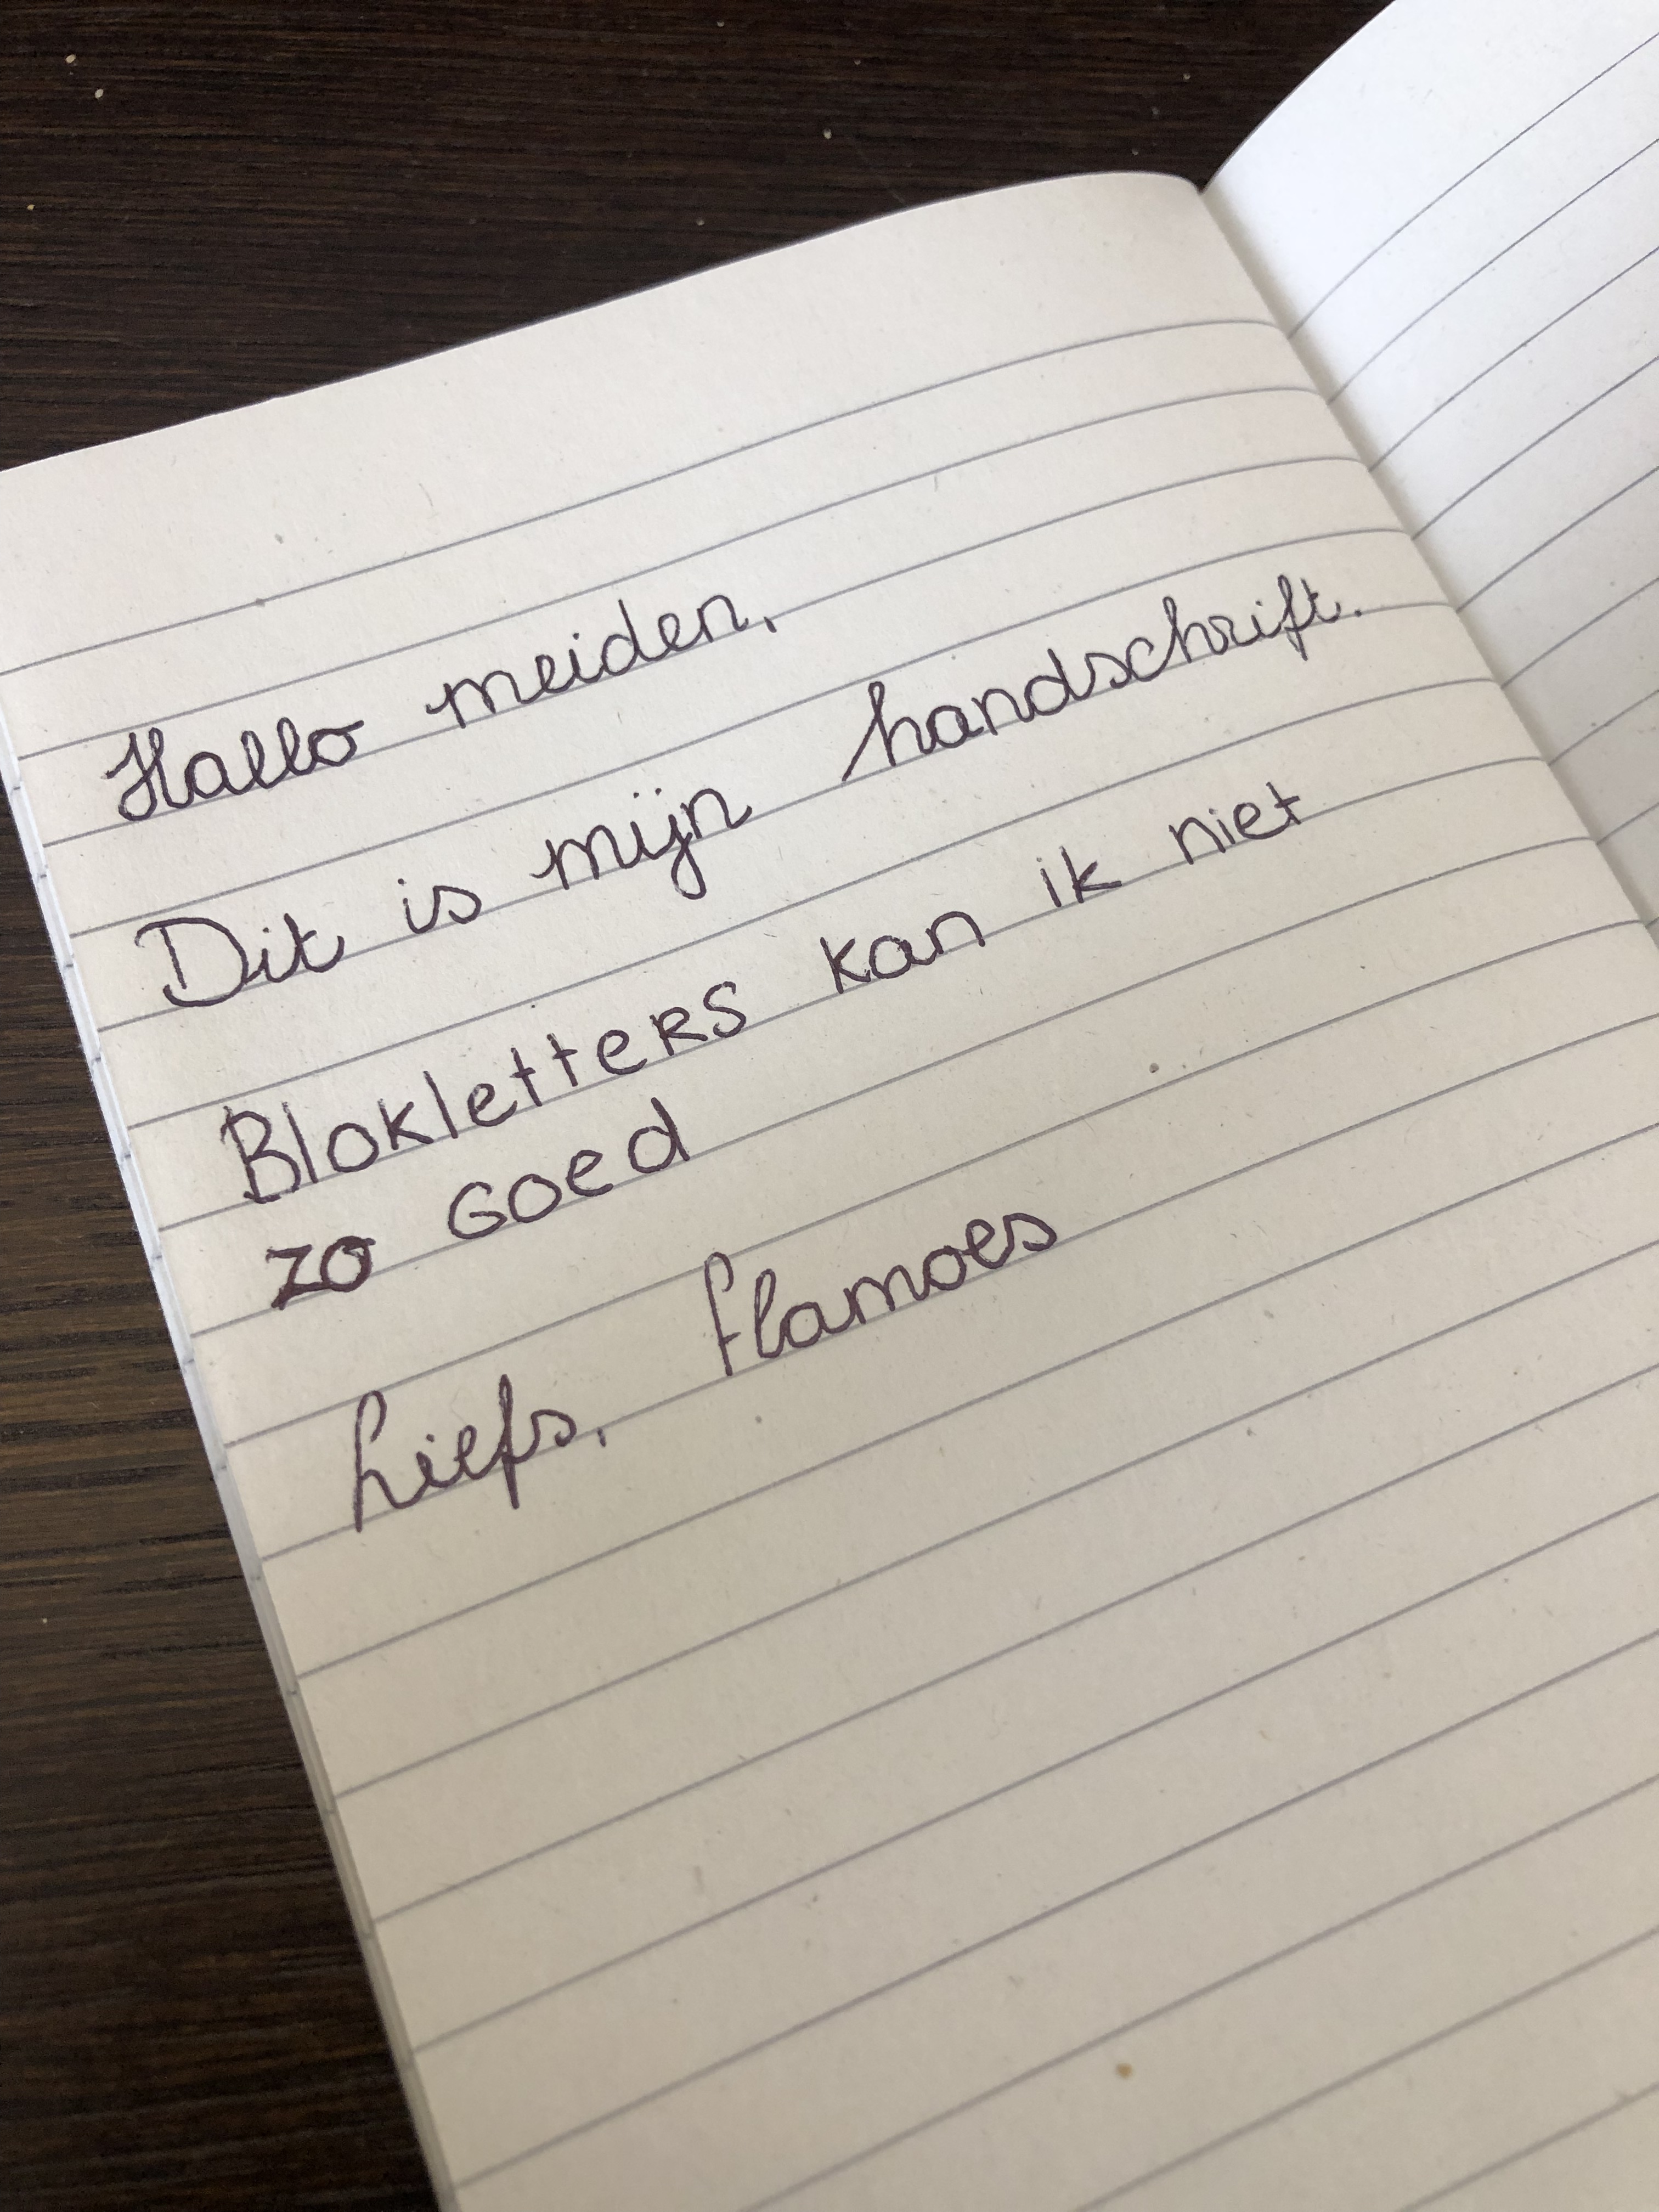 Hallo meiden,
Dit is mijn handschrift.
Blokletters kan ik niet
zo Goed
Liefs, flamoes